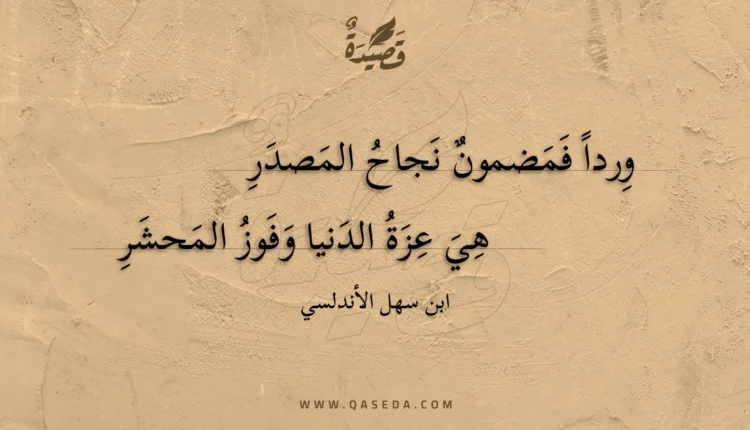 قَصِيدَةٌ
وِرداً فَمَضمونٌ نَجاحُ المَصدَرِ
هِيَ عِزَةُ الدَنيا وَفَوزُ المَحشَرِ
ابن سهل الأندلسي
WWW.QASEDA.COM